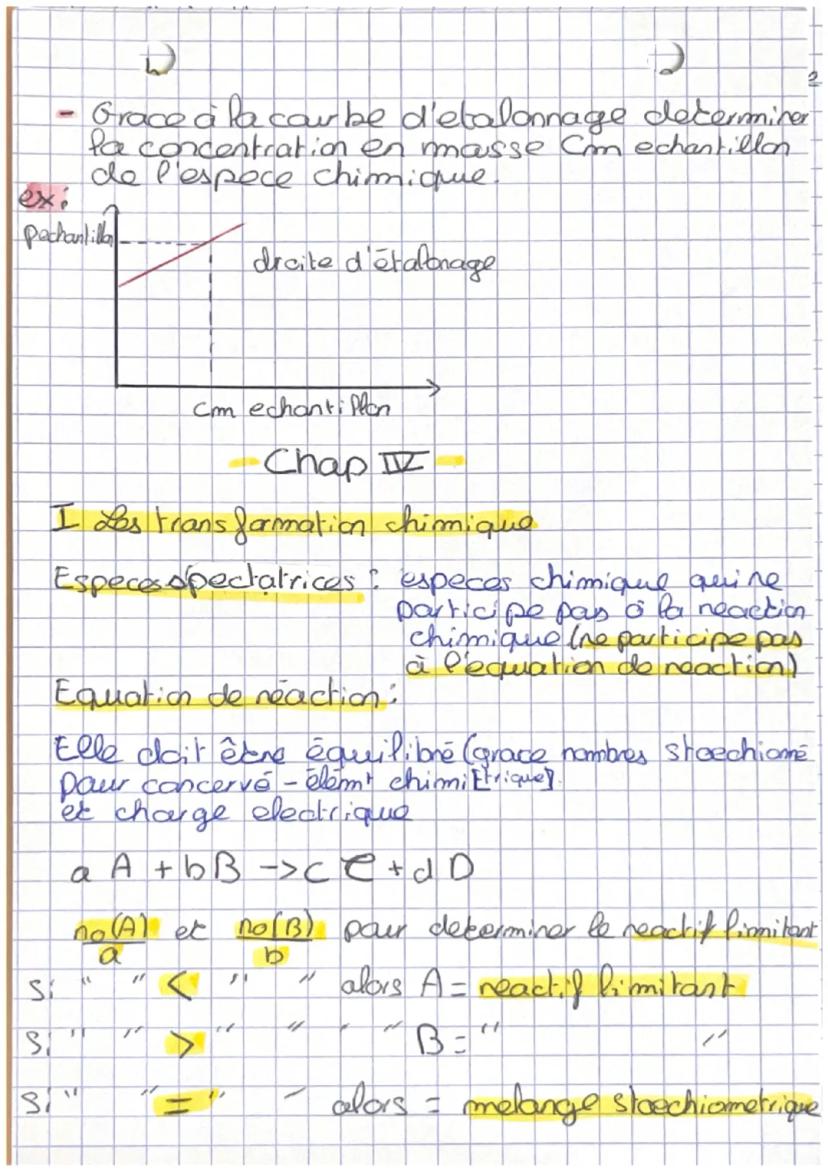 - Grace à la courbe d'etalonnage determiner
la concentration en masse Cm echantillon
de l'espece chimique.
ex:
ρechantillon
droite d'étalonage
Cm echantillon
- Chap IV -
I Les transformation chimique
Especes spectatrices : especes chimique qui ne
participe pas à la reaction
chimique (ne participe pas
à l'equation de reaction)
Equation de réaction :
Elle doit être équilibré (grace nombres stoechiomé
pour concervé - élémt chimi [trique)
et charge electrique
a A + b B -> c C + d D
no(A)/a et no(B)/b pour determiner le reactif limitant
Si " " < " " alors A = reactif limitant
Si " " > " " " " B = " "
Si " " = " " alors = melange stoechiometrique